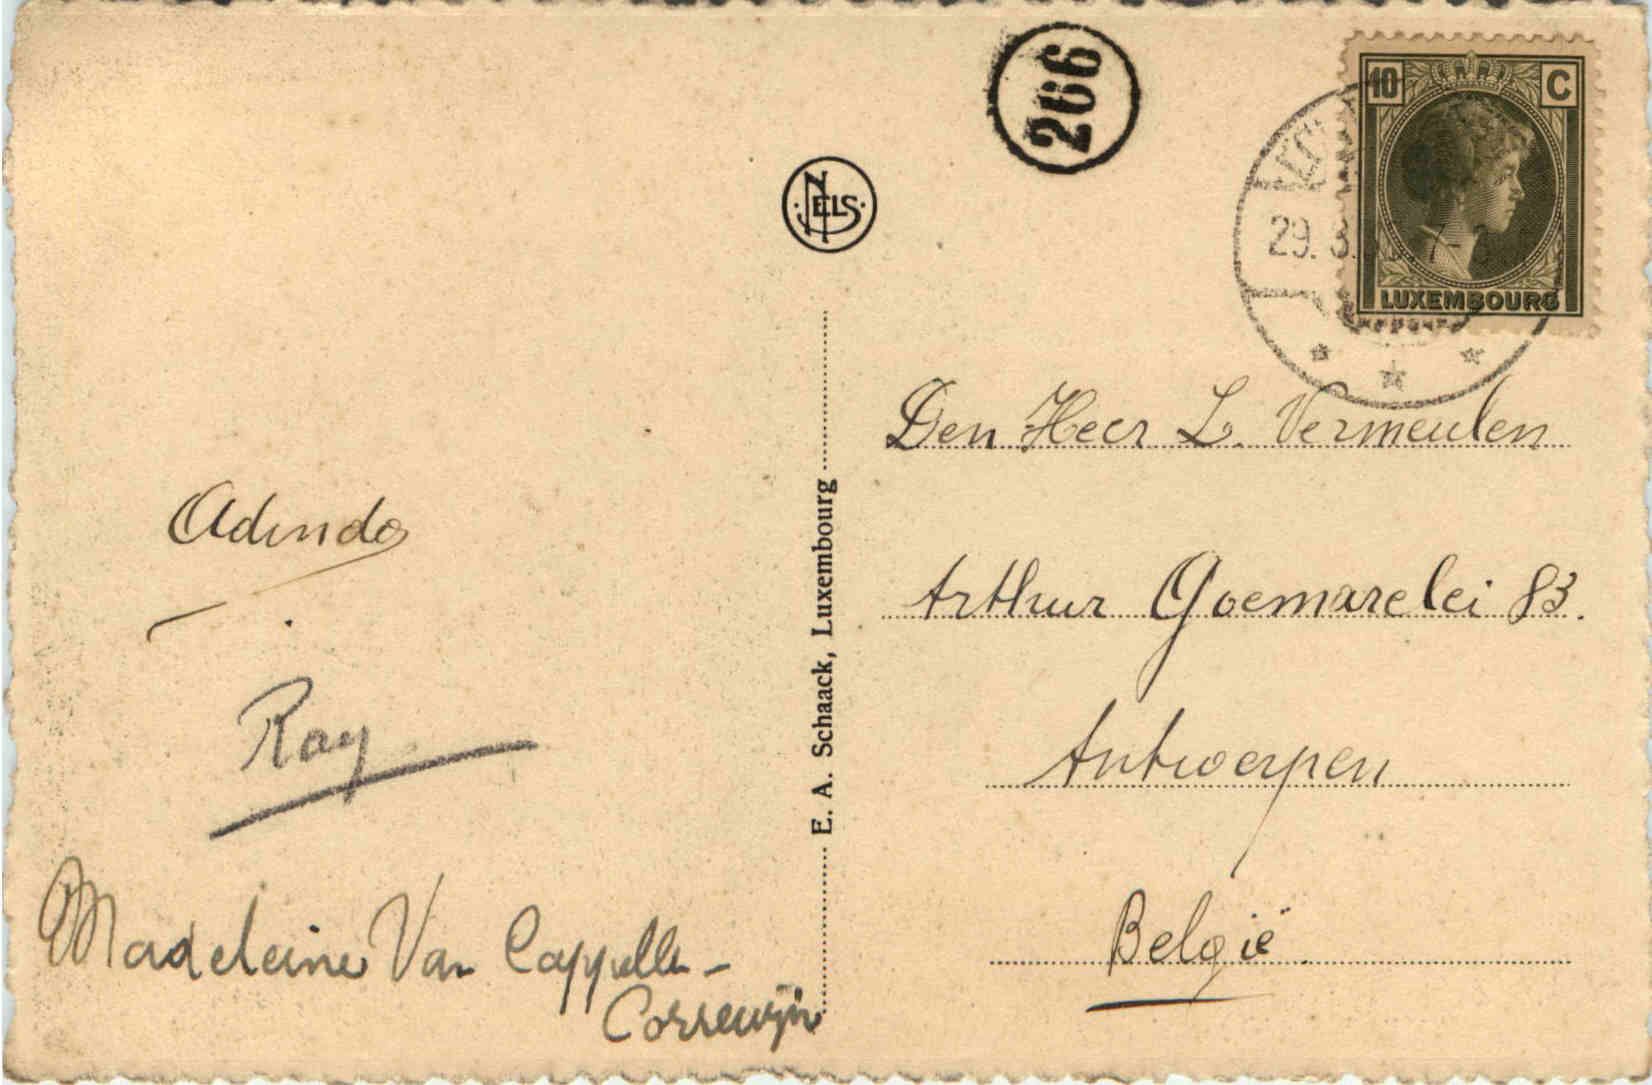 Adinda
Ray
Madeleine Van Cappelle-
Correwijn
NELS
E. A. Schaack, Luxembourg
266
10 C
LUXEMBOURG
29. 3.
Den Heer L. Vermeulen
Arthur Goemarelei 83.
Antwerpen
België